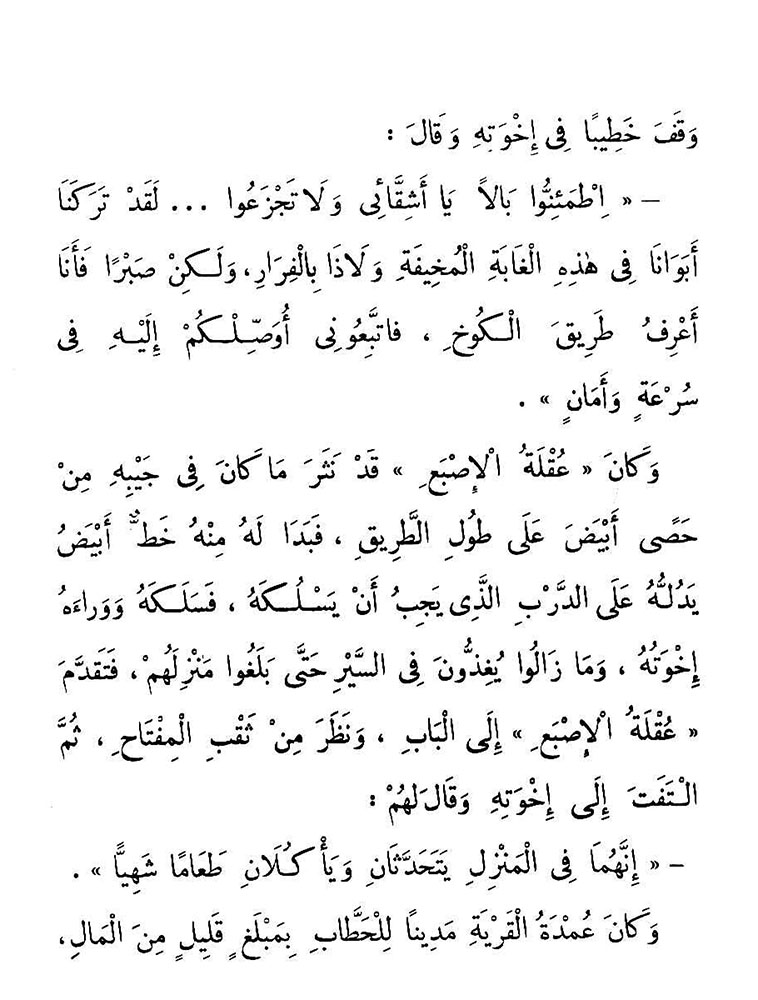 وَقَفَ خَطِيبًا فِى إِخْوَتِهِ وَقَالَ :
– « اِطْمَئِنُّوا بَالاً يَا أَشِقَّائِى وَلَا تَجْزَعُوا ... لَقَدْ تَرَكَنَا
أَبَوَانَا فِى هٰذِهِ الْغَابَةِ الْمُخِيفَةِ وَلَاذَا بِالْفِرَارِ، وَلَـكِنْ صَبْرًا فَأَنَا
أَعْرِفُ طَرِيقَ الْـكُوخِ ، فاتبِّعُونِى أُوَصِّلْـكُمْ إِلَيْـهِ فِى
سُرْعَةٍ وَأَمَانٍ » .
وَكَانَ « عُقْلَةُ الْإِصْبَعِ » قَدْ نَثَرَ مَا كَانَ فِى جَيْبِهِ مِنْ
حَصًى أَبْيَضَ عَلَى طُولِ الطَّرِيقِ ، فَبَدَا لَهُ مِنْهُ خَطٌّ أَبْيَضُ
يَدُلُّهُ عَلَى الدَّرْبِ الَّذِى يَجِبُ أَنْ يَسْلُـكَهُ ، فَسَلَكَهُ وَوَرَاءَهُ
إِخْوَتُهُ ، وَمَا زَالُوا يُغِذُّونَ فِى السَّيْرِ حَتَّى بَلَغُوا مَنْزِلَهُمْ ، فَتَقَدَّمَ
« عُقْلَةُ الْإِصْبَعِ » إِلَى الْبَابِ ، وَنَظَرَ مِنْ ثَقْبِ الْمِفْتَاحِ ، ثُمَّ
الْتَفَتَ إِلَى إِخْوَتِهِ وَقَالَ لَهُمْ :
– « إِنَّهُمَا فِى الْمَنْزِلِ يَتَحَدَّثَانِ وَيَأْكُلَانِ طَعَامًا شَهِيًّا » .
وَكَانَ عُمْدَةُ الْقَرْيَةِ مَدِينًا لِلْحَطَّابِ بِمَبْلَغٍ قَلِيلٍ مِنَ الْمَالِ،